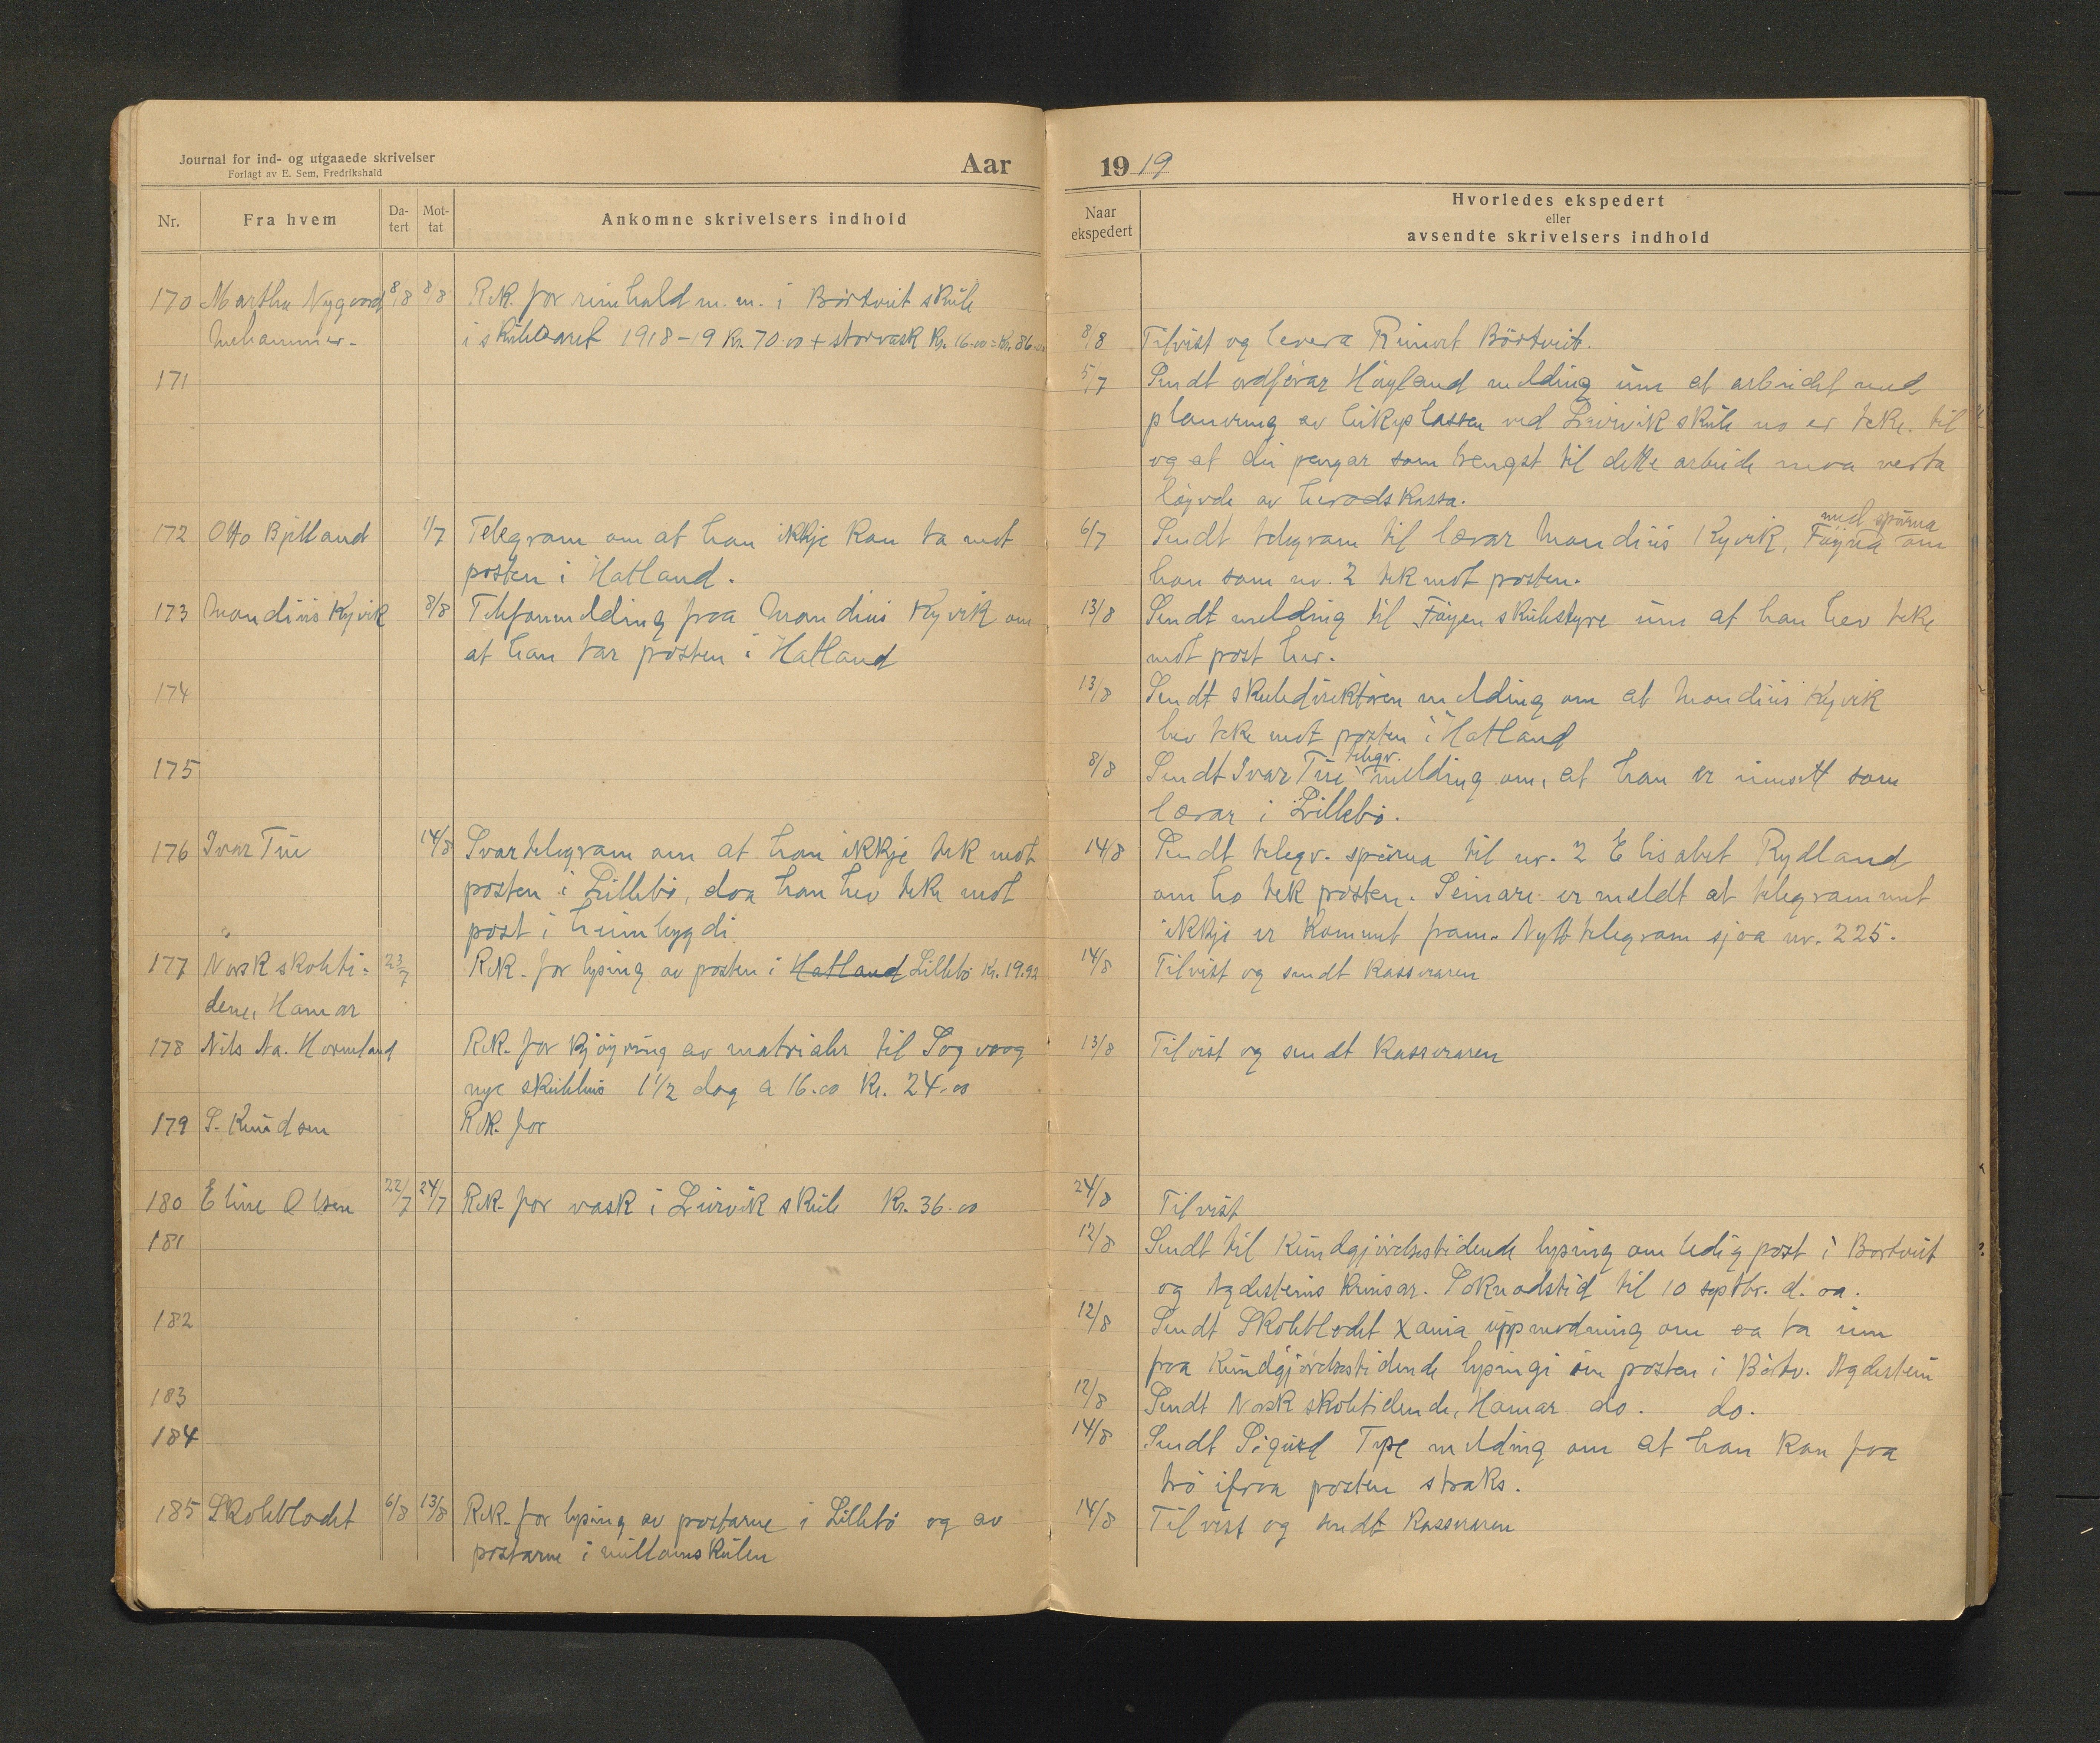 Journal for ind- og utgaaede skrivelser
Forlagt av E. Sem, Fredrikshald
Aar
Nr.
Fra hvem
Da-
tert
Mot-
tat
Ankomne skrivelsers indhold
170 Martha Nygaard 8/8 8/8 Rek. for reinhald m. m. i Börtveit skule
i skuleaaret 1918-19 Kr. 70.00 + storvask Kr. 16.00 = Kr. 86.00
171
172 Otto Bjelland 1/7 Telegram om at han ikkje kan ta mot
posten i Hatland.
173 Mandius Kyvik 8/8 Telefonmelding fraa Mandius Kyvik om
at han tar posten i Hatland
174
175
176 Ivar Tue 14/8 Svartelegram om at han ikkje tek mot
posten i Lillebö, daa han hev teke mot
post i heimbygdi
177 Norsk skoleti- 23/7 Rek. for lysing av posten i Hatland Lillebö Kr. 19.92
dene, Hamar
178 Nils Na. Hovmland Rek. for kjöyring av matrialer til Sagvaag
nye skulehus 1 1/2 dag a 16.00 Kr. 24.00
179 S. Knudsen Rek. for
180 Eline Olsen 22/7 24/7 Rek. for vask i Leirvik skule Kr. 36.00
181
182
183
184
185 Skolebladet 6/8 13/8 Rek. for lysing av postarne i Lillebö og av
postarne i millomskulen
19 19
Naar
ekspedert
Hvorledes ekspedert
eller
avsendte skrivelsers indhold
8/8 Tilvist og levera Reinert Börtveit.
5/7 Sendt ordförar Höyland melding um at arbeidet med
planering av leikeplassen ved Leirvik skule no er teke til
og at dei pengar som trengst til dette arbeide maa verta
löyvde av heradskassa.
med spurna
6/7 Sendt telegram til lærar Mandius Kyvik, om
han som nr. 2 tek mot posten.
13/8 Sendt melding til skulestyre um at han hev teke
mot post her.
13/8 Sendt skuledirektören melding om at Mandius Kyvik
hev teke mot posten i Hatland
telegr.
8/8 Sendt Ivar Tue melding om, at han er innsett som
lærar i Lillebö.
14/8 Sendt telegr. spurna til nr. 2 Elisabet Rydland
om ho tek posten. Seinare er meldt at telegrammet
ikkje er kommet fram. Nytt telegram sjaa nr. 225.
14/8 Tilvist og sendt kasseraren
13/8 Tilvist og sendt kasseraren
24/8 Tilvist
12/8 Sendt til Kundgjörelsestidende lysing om ledig post i Bortveit
og Agdesteins krinsar. Soknadstid til 10 septbr. d. aa.
12/8 Sendt Skolebladet Xania uppmodning om aa ta inn
fraa Kundgjörelsestidende lysingi um posten i Börtv. Agdestein
12/8 Sendt Norsk skoletidende, Hamar do. do.
14/8 Sendt Sigurd Type melding om at han kan faa
trö ifraa posten straks.
14/8 Tilvist og sendt kasseraren